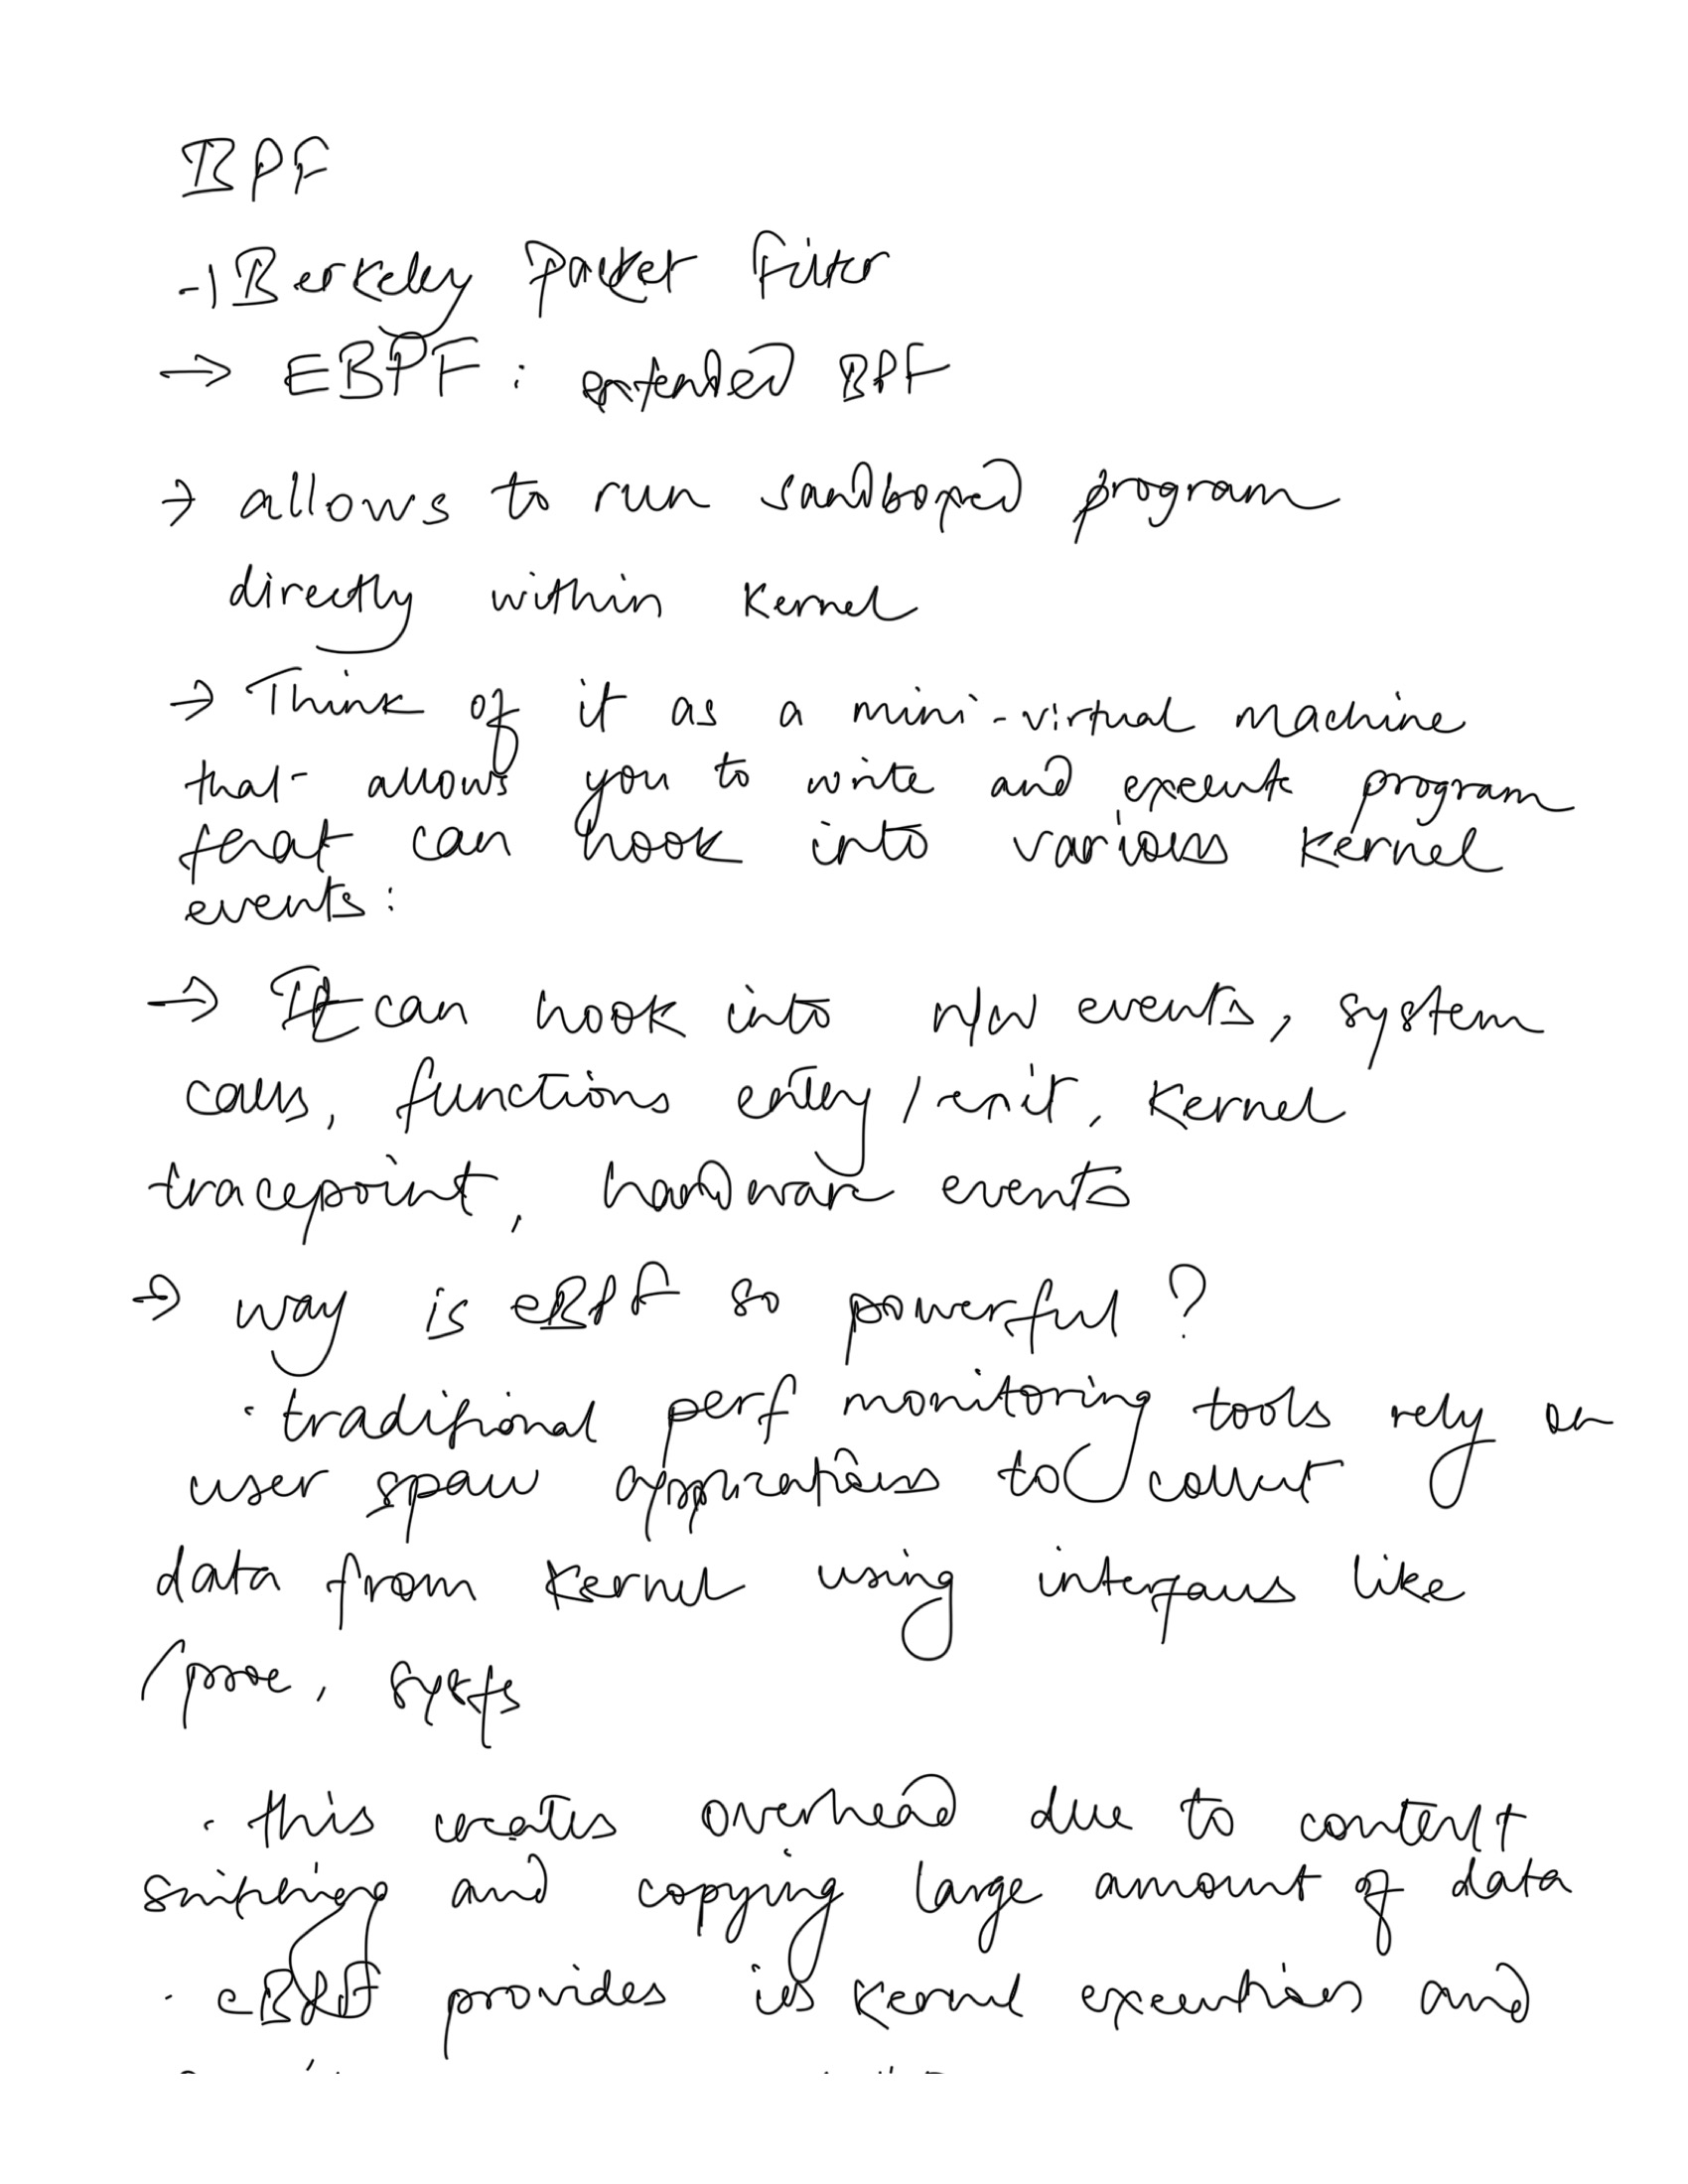 BPF
→ Berkeley Packet Filter
→ EBPF : extended BPF
→ allows to run sandboxed program
directly within Kernel
→ Think of it as a mini-virtual machine
that allows you to write and execute program
that can hook into various Kernel
events:
→ It can hook into n/w events, system
calls, functions entry / exit, Kernel
tracepoint, hardware events
→ Why is eBPF so powerful ?
· traditional perf monitoring tools rely on
user space applications to collect
data from Kernel using interfaces like
/proc, sysfs
· this creates overhead due to context
switching and copying large amount of data
· eBPF provides in Kernel execution and